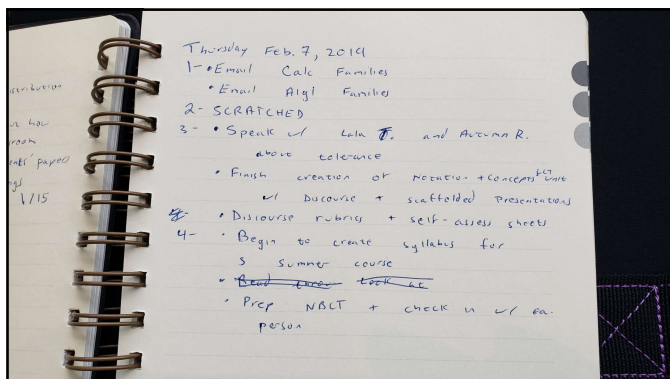 istribution
how
room
ents' papers
ngs
1/15
Thursday Feb. 7, 2019
1- • Email Calc Families
• Email Alg1 Families
2- SCRATCHED
3- • Speak w/ Lala T. and Autumn R.
about tolerance
• Finish creation of Notation + Concepts unit
w/ Discourse + scaffolded presentations
• Discourse rubrics + self-assess sheets
4- • Begin to create syllabus for
S summer course
• Read
• Prep NBCT + check in w/ ea.
person